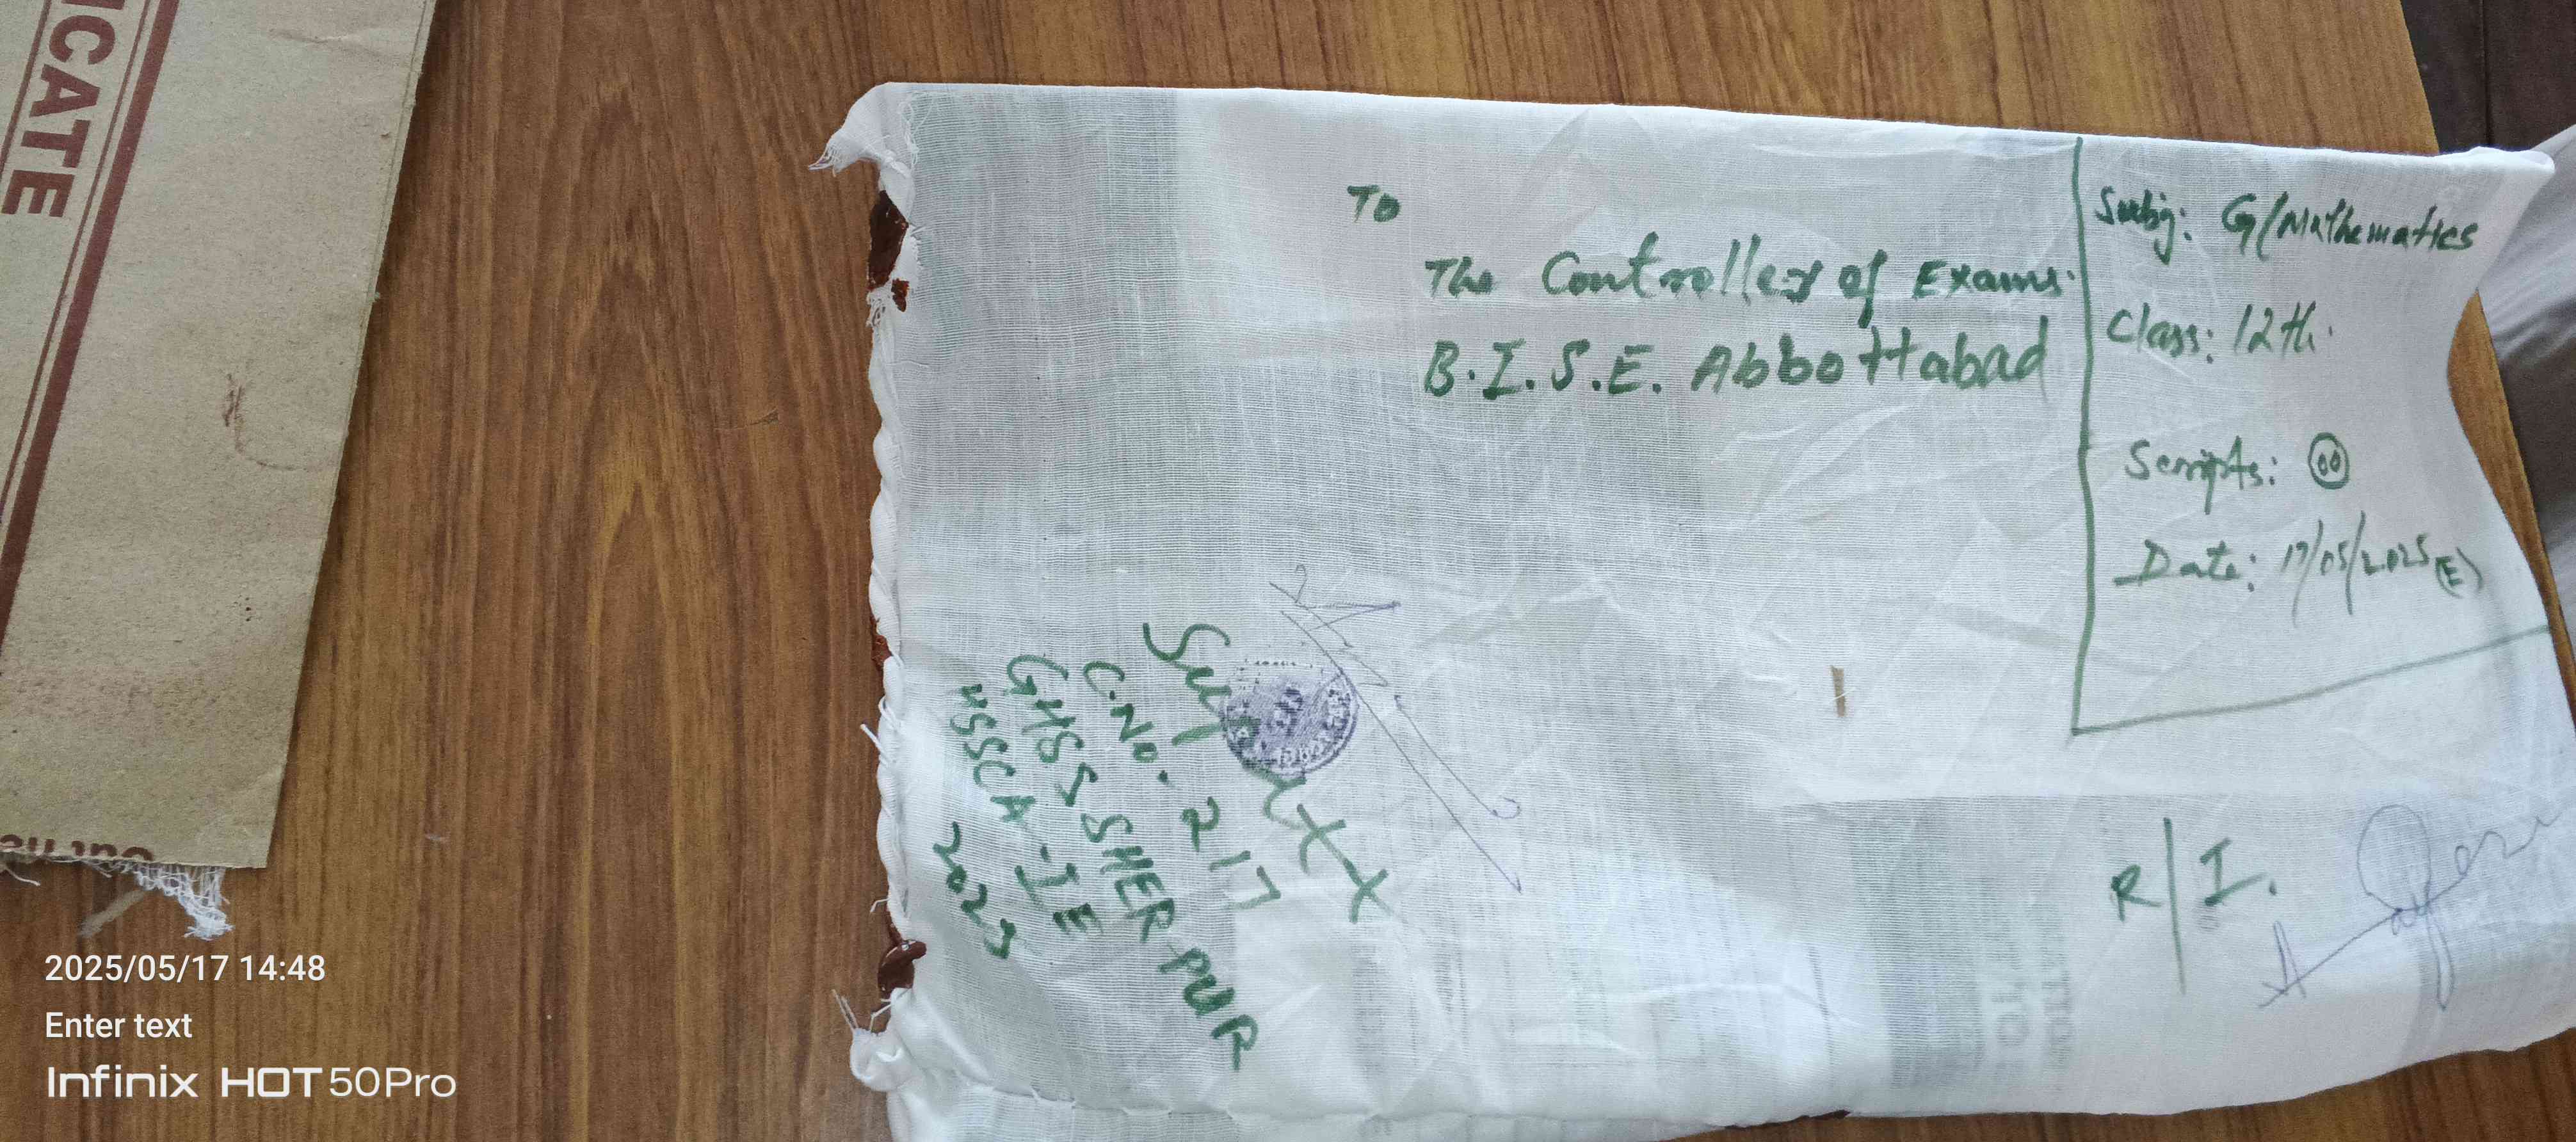 ICATE
To
The Controller of Exams.
B.I.S.E. Abbottabad
Subj: G/Mathematics
Class: 12th.
Scripts: 00
Date: 17/05/2025 (E)
C.No. 217
GHSS SHER PUR
HSSCA-IE
2025
R/I.
2025/05/17 14:48
Enter text
Infinix HOT 50Pro